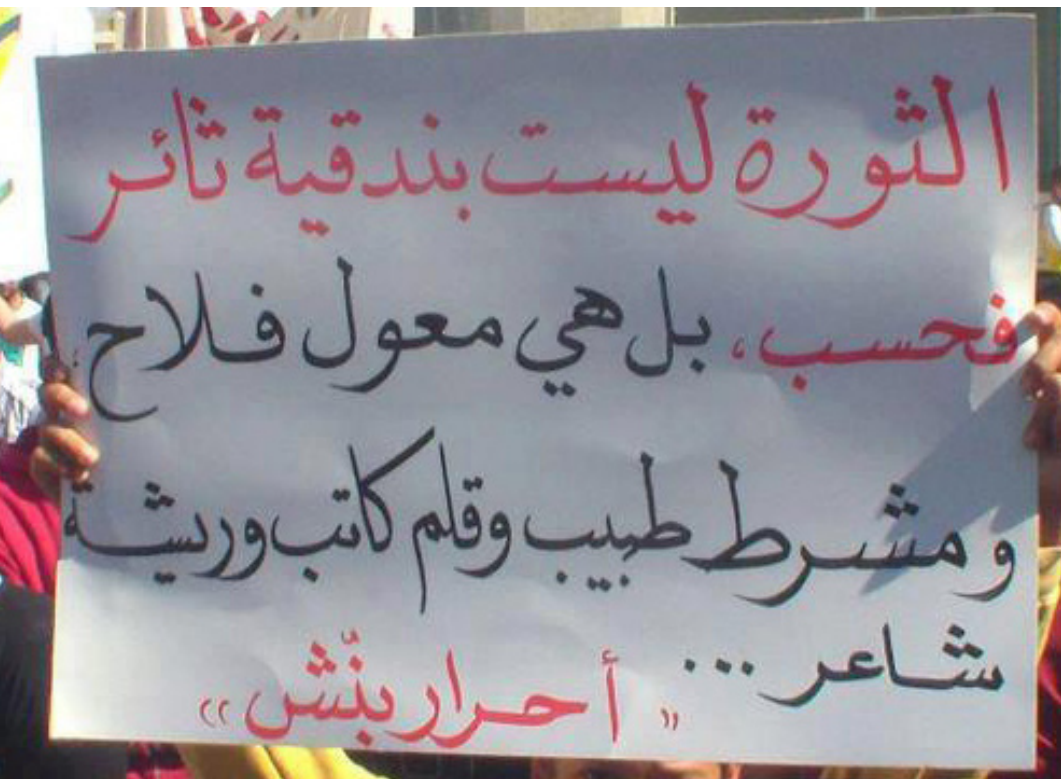 الثورة ليست بندقية ثائر
فحسب، بل هي معول فلاح،
ومشرط طبيب وقلم كاتب وريشة
شاعر ...
"أحرار بنّش"